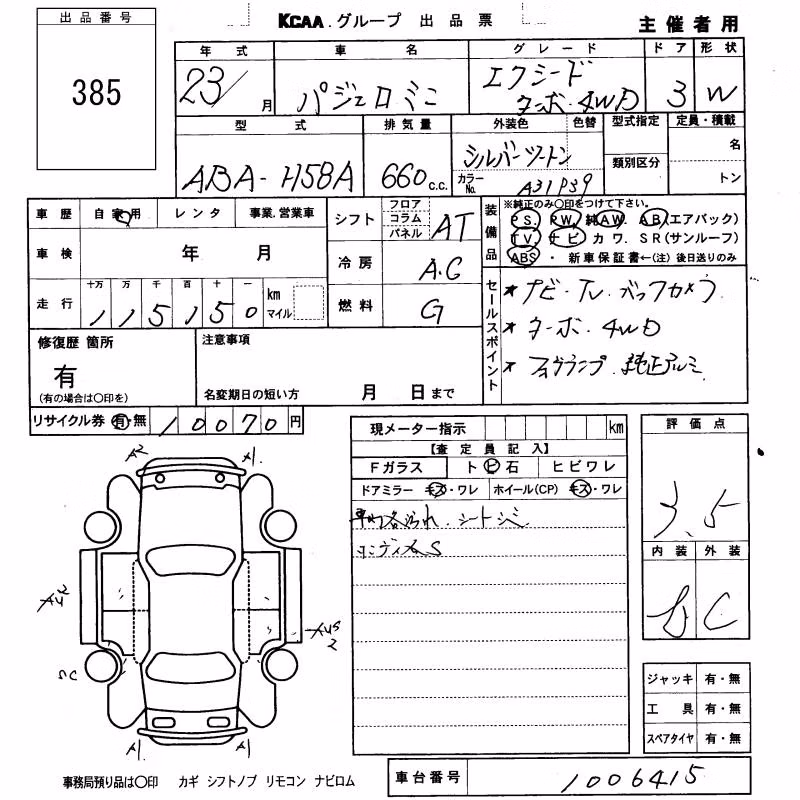 出品番号
385
KCAA.グループ 出品票
主催者用
年式 車名 グレード ドア 形状
23/ 月 パジェロミニ エクシード ターボ・4WD 3 W
型式 排気量 外装色 色替 型式指定 定員・積載
ABA-H58A 660 c.c. シルバーツートン 名
カラーNo. A31P39 類別区分 トン
車歴 自家用 レンタ 事業.営業車
シフト フロア コラム パネル AT
装備品 ※純正のみ〇印をつけて下さい。
PS. PW. 純AW. AB(エアバック)
TV. ナビ カワ. SR(サンルーフ)
ABS ・ 新車保証書←(注)後日送りのみ
車検 年 月
冷房 A.C
走行 十万 万 千 百 十 一
115150 km マイル
燃料 G
セールスポイント
* ナビ・TV・バックカメラ
* ターボ・4WD
* フォグランプ・純正アルミ
修復歴 箇所
有
(有の場合は〇印を)
注意事項
名変期日の短い方 月 日まで
リサイクル券 有・無 10070 円
現メーター指示 km
【査定員記入】
Fガラス トビ石 ヒビワレ
ドアミラー キズ・ワレ ホイール(CP) キズ・ワレ
シートシミ
評価点
3.5
内装 外装
C
A2 A1
A1 A1
ジャッキ 有・無
工具 有・無
スペアタイヤ 有・無
事務局預り品は〇印 カギ シフトノブ リモコン ナビロム
車台番号 1006415